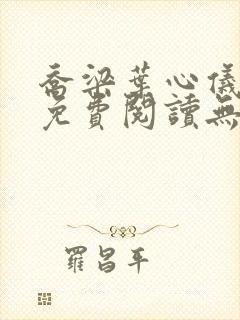 喬梁葉心儀
免費閱讀無
羅昌平